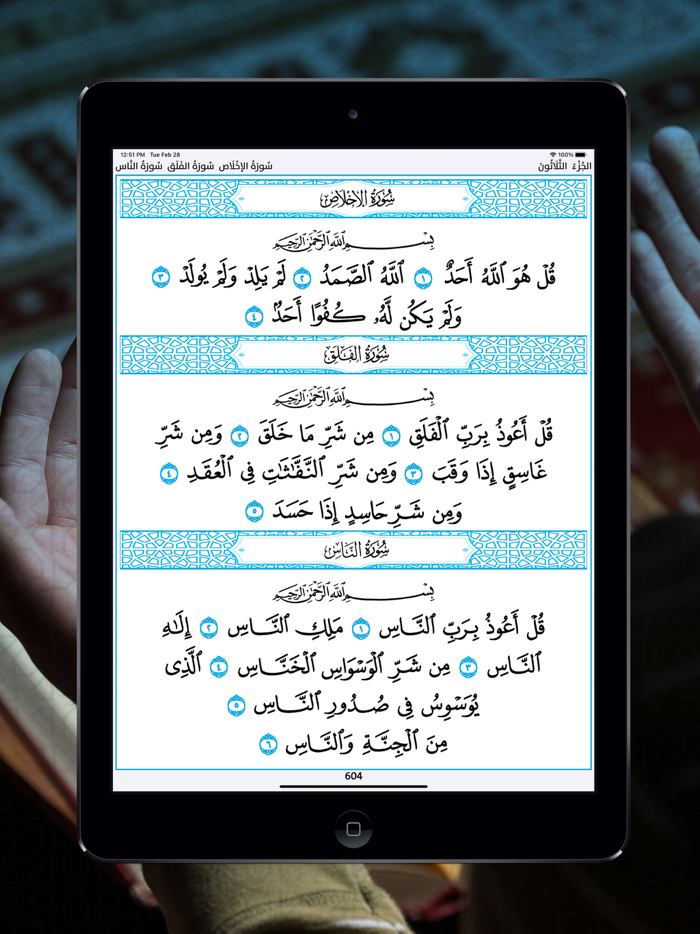 12:51 PM Tue Feb 28 100%
سُورَةُ الإِخْلَاص سُورَةُ الفَلَق سُورَةُ النَّاس الجُزْءُ الثَّلَاثُونَ
سُورَةُ الإِخْلَاصِ
بِسْمِ ٱللَّهِ ٱلرَّحْمَٰنِ ٱلرَّحِيمِ
قُلْ هُوَ ٱللَّهُ أَحَدٌ ١ ٱللَّهُ ٱلصَّمَدُ ٢ لَمْ يَلِدْ وَلَمْ يُولَدْ ٣
وَلَمْ يَكُن لَّهُۥ كُفُوًا أَحَدٌۢ ٤
سُورَةُ الفَلَقِ
بِسْمِ ٱللَّهِ ٱلرَّحْمَٰنِ ٱلرَّحِيمِ
قُلْ أَعُوذُ بِرَبِّ ٱلْفَلَقِ ١ مِن شَرِّ مَا خَلَقَ ٢ وَمِن شَرِّ
غَاسِقٍ إِذَا وَقَبَ ٣ وَمِن شَرِّ ٱلنَّفَّٰثَٰتِ فِى ٱلْعُقَدِ ٤
وَمِن شَرِّ حَاسِدٍ إِذَا حَسَدَ ٥
سُورَةُ النَّاسِ
بِسْمِ ٱللَّهِ ٱلرَّحْمَٰنِ ٱلرَّحِيمِ
قُلْ أَعُوذُ بِرَبِّ ٱلنَّاسِ ١ مَلِكِ ٱلنَّاسِ ٢ إِلَٰهِ
ٱلنَّاسِ ٣ مِن شَرِّ ٱلْوَسْوَاسِ ٱلْخَنَّاسِ ٤ ٱلَّذِى
يُوَسْوِسُ فِى صُدُورِ ٱلنَّاسِ ٥
مِنَ ٱلْجِنَّةِ وَٱلنَّاسِ ٦
604